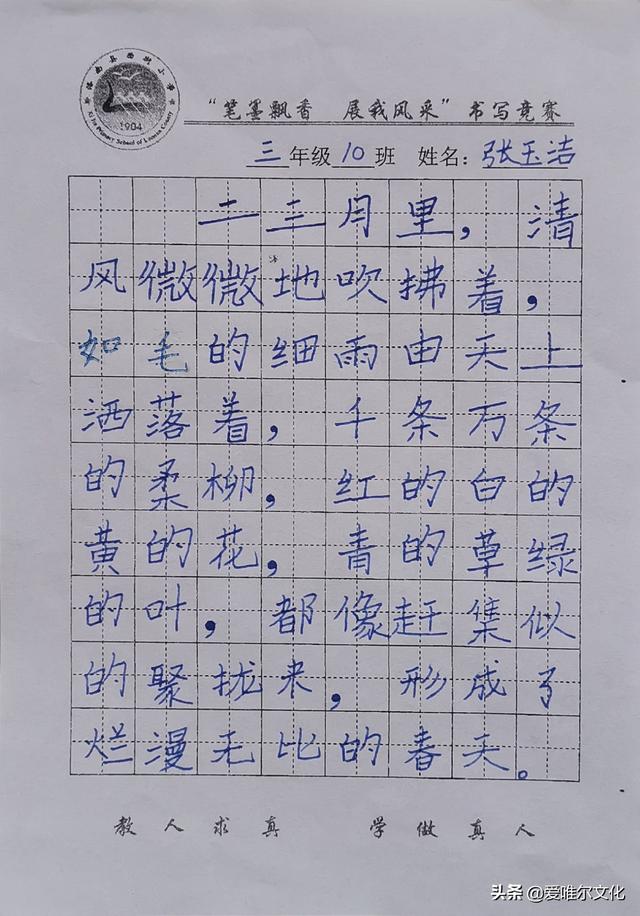 "笔墨飘香 展我风采"书写竞赛
三年级10班 姓名：张玉洁
1904
二三月里，清
风微微地吹拂着，
如毛的细雨由天上
洒落着，千条万条
的柔柳，红的白的
黄的花，青的草绿
的叶，都像赶集似
的聚拢来，形成了
烂漫无比的春天。
教人求真 学做真人
头条 @爱唯尔文化